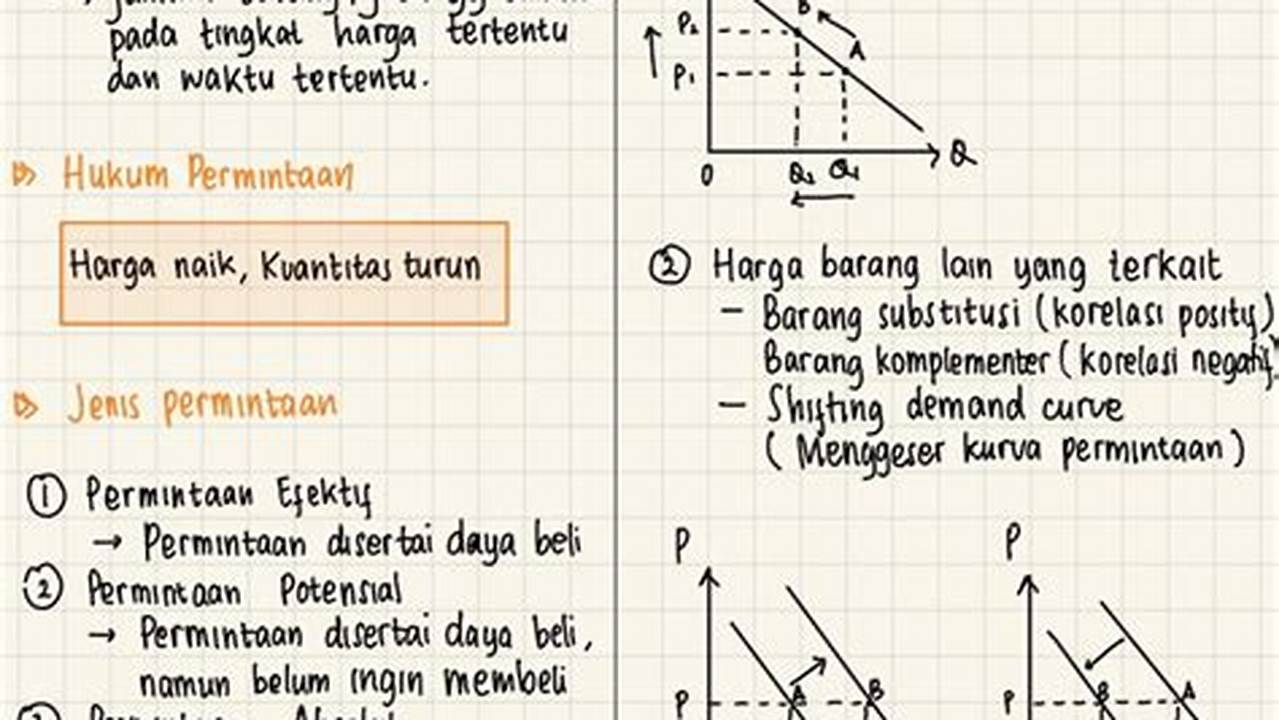 pada tingkat harga tertentu
dan waktu tertentu.
Hukum Permintaan
Harga naik, Kuantitas turun
Jenis permintaan
① Permintaan Efektif
→ Permintaan disertai daya beli
② Permintaan Potensial
→ Permintaan disertai daya beli,
namun belum ingin membeli
B
P₂
A
P₁
0
Q₂ Q₁
Q
② Harga barang lain yang terkait
- Barang substitusi (korelasi positif)
Barang komplementer (korelasi negatif)
- Shifting demand curve
(Menggeser kurva permintaan)
P
P A B
P
P B A